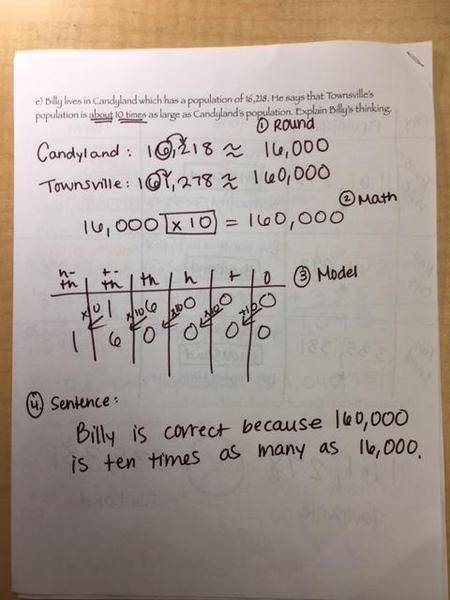 e) Billy lives in Candyland which has a population of 16,218. He says that Townsville's
population is about 10 times as large as Candyland's population. Explain Billy's thinking.
① Round
Candyland: 16,218 ≈ 16,000
Townsville: 161,278 ≈ 160,000
② Math
16,000 x 10 = 160,000
h-th t-th th h t o
③ Model
1 6 0 0 0
x10 x10 x10 x10 x10
1 6 0 0 0 0
④ Sentence:
Billy is correct because 160,000
is ten times as many as 16,000.